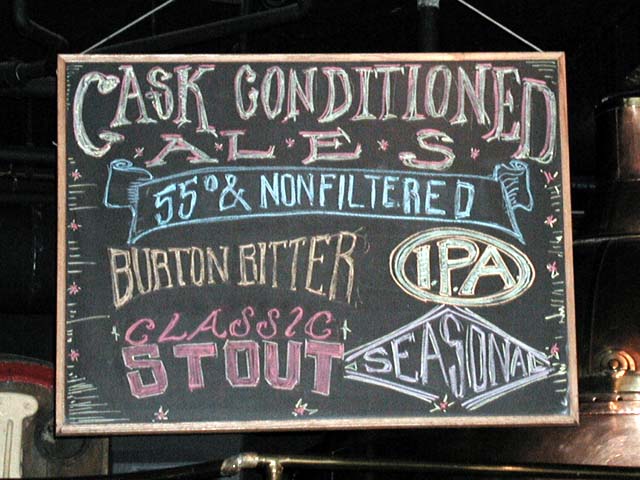 CASK CONDITIONED
ALES
55° & NONFILTERED
BURTON BITTER
I.P.A
CLASSIC
STOUT
SEASONAL